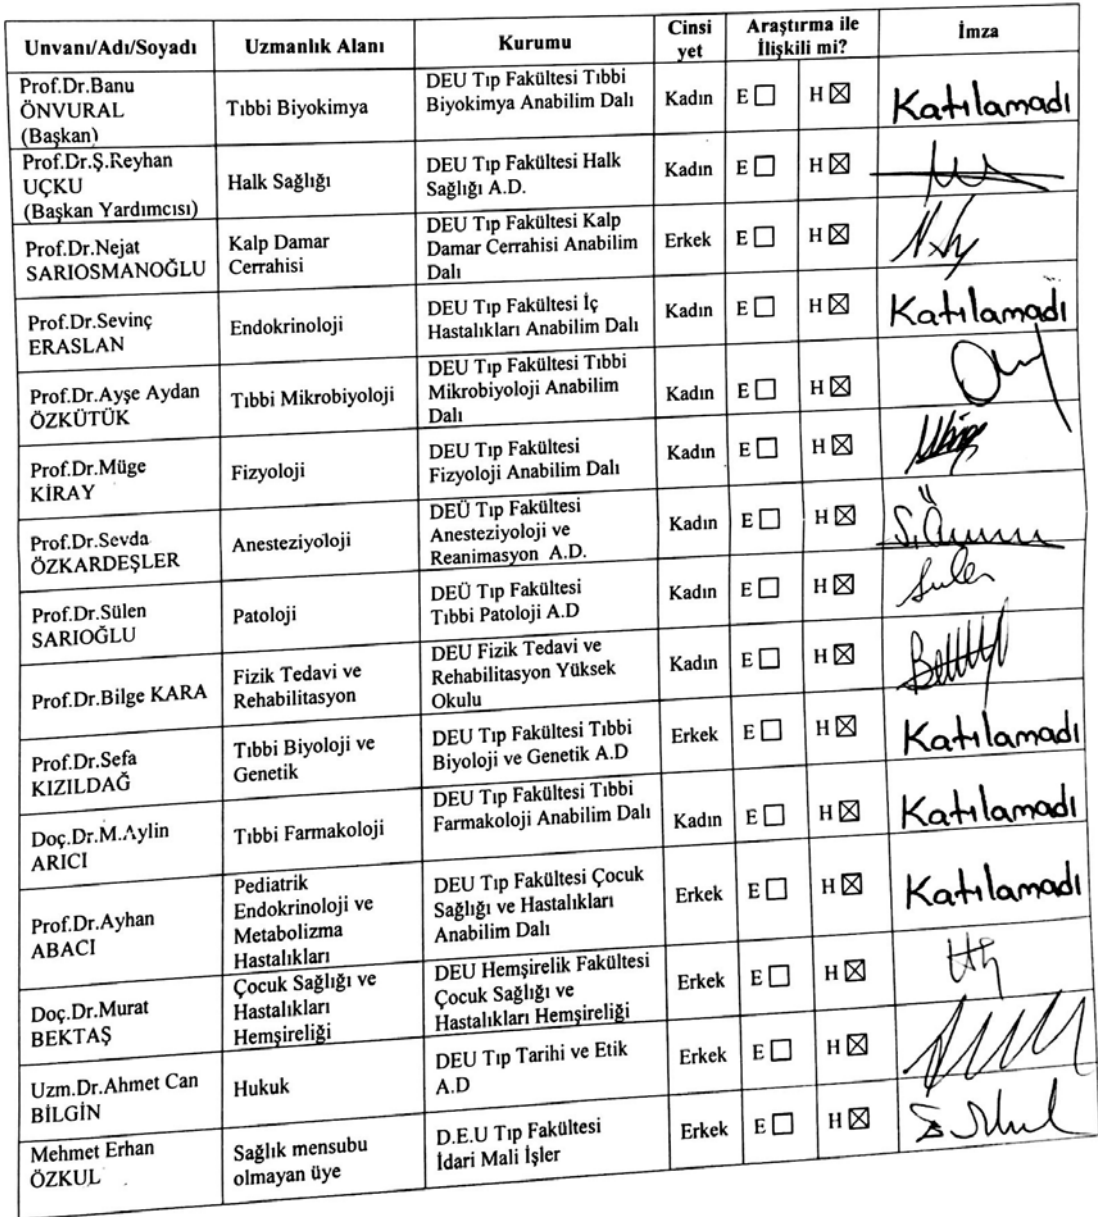 Unvanı/Adı/Soyadı
Uzmanlık Alanı
Kurumu
Cinsi
yet
Araştırma ile
İlişkili mi?
İmza
Prof.Dr.Banu
ÖNVURAL
(Başkan)
Tıbbi Biyokimya
DEU Tıp Fakültesi Tıbbi
Biyokimya Anabilim Dalı
Kadın
E ☐
H ☒
Katılamadı
Prof.Dr.Ş.Reyhan
UÇKU
(Başkan Yardımcısı)
Halk Sağlığı
DEU Tıp Fakültesi Halk
Sağlığı A.D.
Kadın
E ☐
H ☒
Prof.Dr.Nejat
SARIOSMANOĞLU
Kalp Damar
Cerrahisi
DEU Tıp Fakültesi Kalp
Damar Cerrahisi Anabilim
Dalı
Erkek
E ☐
H ☒
Prof.Dr.Sevinç
ERASLAN
Endokrinoloji
DEU Tıp Fakültesi İç
Hastalıkları Anabilim Dalı
Kadın
E ☐
H ☒
Katılamadı
Prof.Dr.Ayşe Aydan
ÖZKÜTÜK
Tıbbi Mikrobiyoloji
DEU Tıp Fakültesi Tıbbi
Mikrobiyoloji Anabilim
Dalı
Kadın
E ☐
H ☒
Prof.Dr.Müge
KİRAY
Fizyoloji
DEU Tıp Fakültesi
Fizyoloji Anabilim Dalı
Kadın
E ☐
H ☒
Prof.Dr.Sevda
ÖZKARDEŞLER
Anesteziyoloji
DEÜ Tıp Fakültesi
Anesteziyoloji ve
Reanimasyon A.D.
Kadın
E ☐
H ☒
Prof.Dr.Sülen
SARIOĞLU
Patoloji
DEÜ Tıp Fakültesi
Tıbbi Patoloji A.D
Kadın
E ☐
H ☒
Prof.Dr.Bilge KARA
Fizik Tedavi ve
Rehabilitasyon
DEU Fizik Tedavi ve
Rehabilitasyon Yüksek
Okulu
Kadın
E ☐
H ☒
Prof.Dr.Sefa
KIZILDAĞ
Tıbbi Biyoloji ve
Genetik
DEU Tıp Fakültesi Tıbbi
Biyoloji ve Genetik A.D
Erkek
E ☐
H ☒
Katılamadı
Doç.Dr.M.Aylin
ARICI
Tıbbi Farmakoloji
DEU Tıp Fakültesi Tıbbi
Farmakoloji Anabilim Dalı
Kadın
E ☐
H ☒
Katılamadı
Prof.Dr.Ayhan
ABACI
Pediatrik
Endokrinoloji ve
Metabolizma
Hastalıkları
DEU Tıp Fakültesi Çocuk
Sağlığı ve Hastalıkları
Anabilim Dalı
Erkek
E ☐
H ☒
Katılamadı
Doç.Dr.Murat
BEKTAŞ
Çocuk Sağlığı ve
Hastalıkları
Hemşireliği
DEU Hemşirelik Fakültesi
Çocuk Sağlığı ve
Hastalıkları Hemşireliği
Erkek
E ☐
H ☒
Uzm.Dr.Ahmet Can
BİLGİN
Hukuk
DEU Tıp Tarihi ve Etik
A.D
Erkek
E ☐
H ☒
Mehmet Erhan
ÖZKUL
Sağlık mensubu
olmayan üye
D.E.U Tıp Fakültesi
İdari Mali İşler
Erkek
E ☐
H ☒